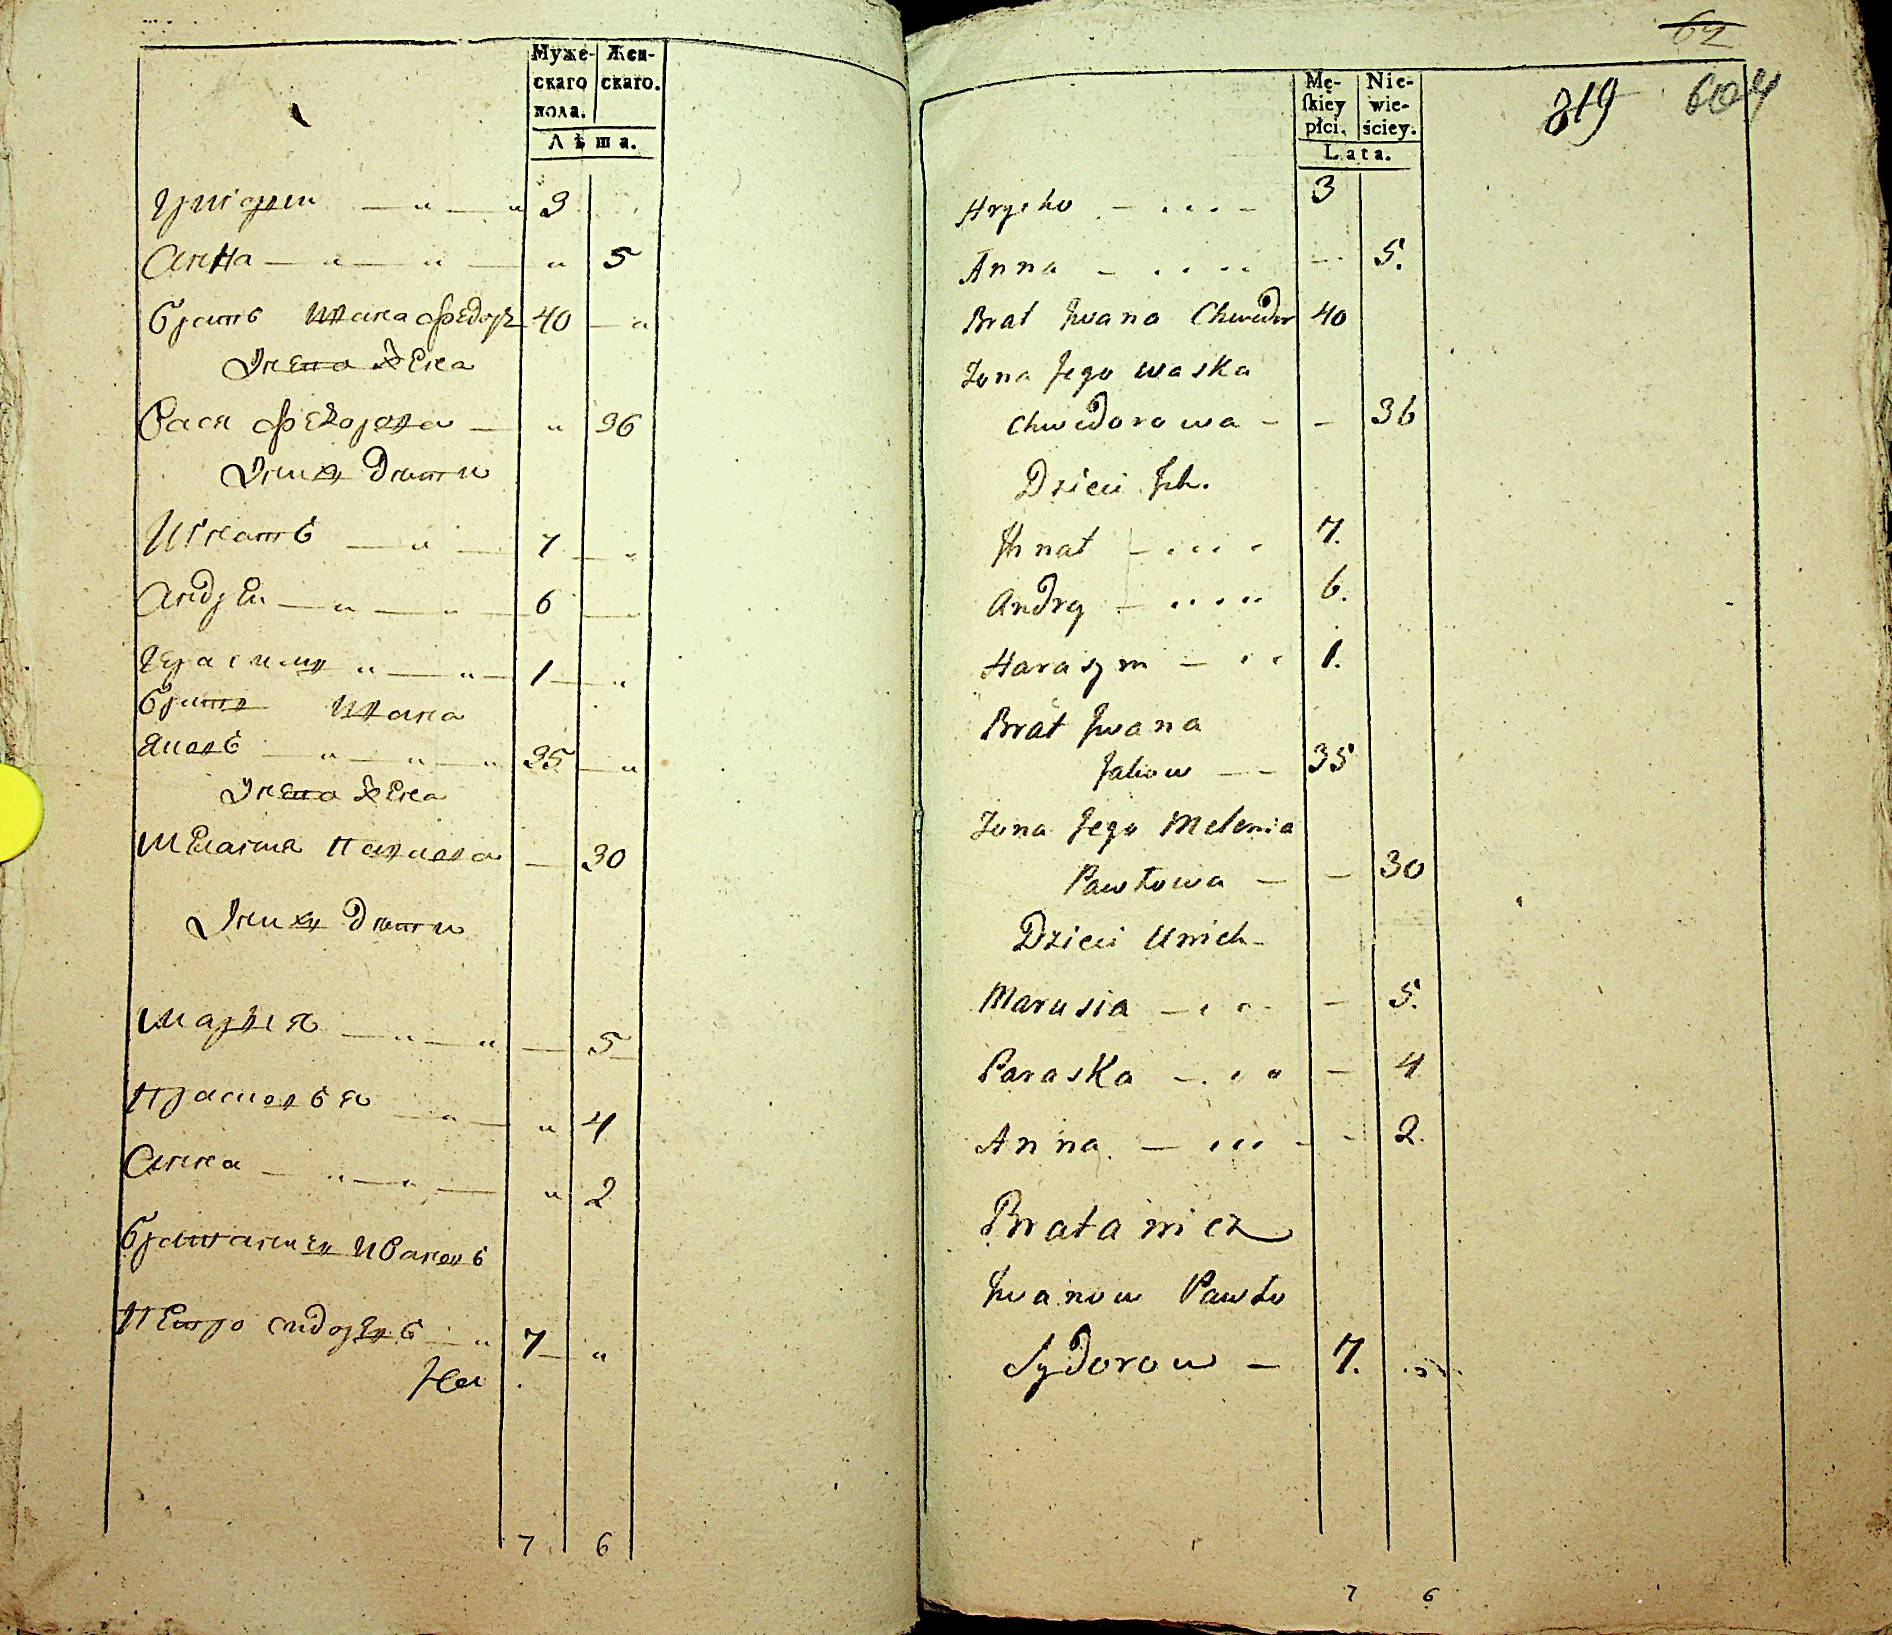 Муже- Жен-
скаго скаго.
пола.
Лѣта.
Григори — „ — „ 3
Анна — „ — „ — „ 5
братъ Ивана Федоръ 40 — „
Онего жена
Вася Федорова — „ 36
Они́хъ дѣти
Игнатъ — „ — 7 — „
Андрей — „ — „ — 6 —
Герасимъ „ — „ — 1 — „
братъ Ивана
Яковъ — „ — „ — „ 35 — „
Онего жена
Меланія Павлова — 30
Онихъ дѣти
Марья — „ — „ — 5
Прасковья — „ — „ 4
Анна — „ — „ — „ 2
братаничъ Ивановъ
Петро Сидоровъ — „ 7 — „
7 6
62
819 604
Mę- Nie-
skiey wie-
płci. ściey.
Lata.
Hrycko — . . . — 3
Anna — . . . . — 5.
Brat Jwana Chwedor 40
Żona Jego Waska
Chwedorowa — — 36
Dzieci Jch.
Jhnat — . . . . 7.
Andry — . . . . 6.
Harasym — . . 1.
Brat Jwana
Jakow — — 35
Żona Jego Melania
Pawłowa — — 30
Dzieci Unich —
Marusia — . . . — 5.
Paraska — . . . — 4
Anna — . . . — — 2.
Bratanicz
Jwanow Pawło
Sydorow — 7.
7 6